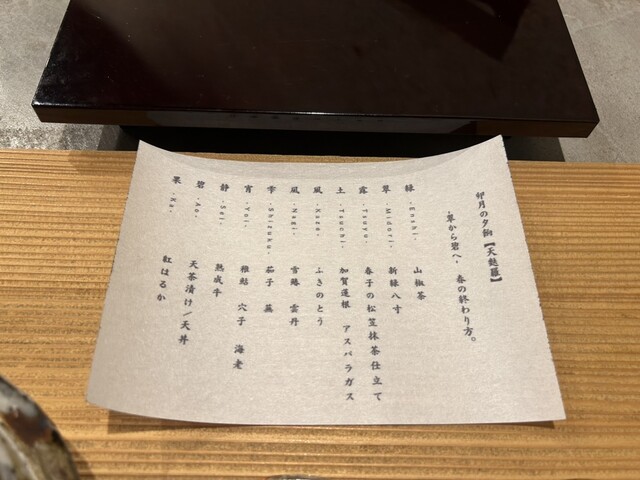 卯月の夕餉【天麩羅】
-翠から碧へ- 春の終わり方。
縁 -Enishi- 山椒茶
翠 -Midori- 新緑八寸
露 -Tsuyu- 春子の松笠抹茶仕立て
土 -Tsuchi- 加賀蓮根 アスパラガス
風 -Kaze- ふきのとう
凪 -Nagi- 雲丹
雫 -Shizuku- 茄子 蕪
宵 -Yoi- 稚鮎 穴子 海老
静 -Sei- 熟成牛
碧 -Ao- 天茶漬け/天丼
果 -Ka- 紅はるか